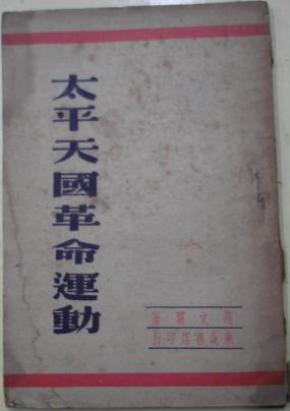 太平天國革命運動
范文瀾著
東北書店印行